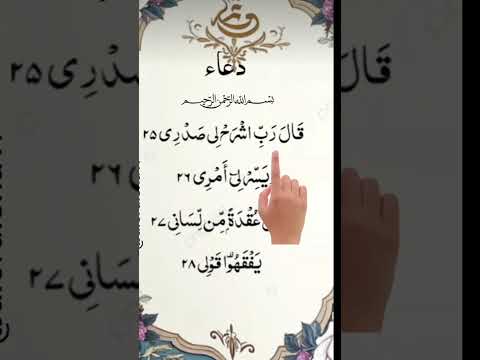 دُعَاء
بسم الله الرحمن الرحيم
قَالَ رَبِّ اشْرَحْ لِی صَدْرِی ۲۵
یَسِّرْ لِیْۤ أَمْرِی ۲۶
عُقْدَةً مِّن لِّسَانِی ۲۷
یَفْقَهُوْا قَوْلِی ۲۸